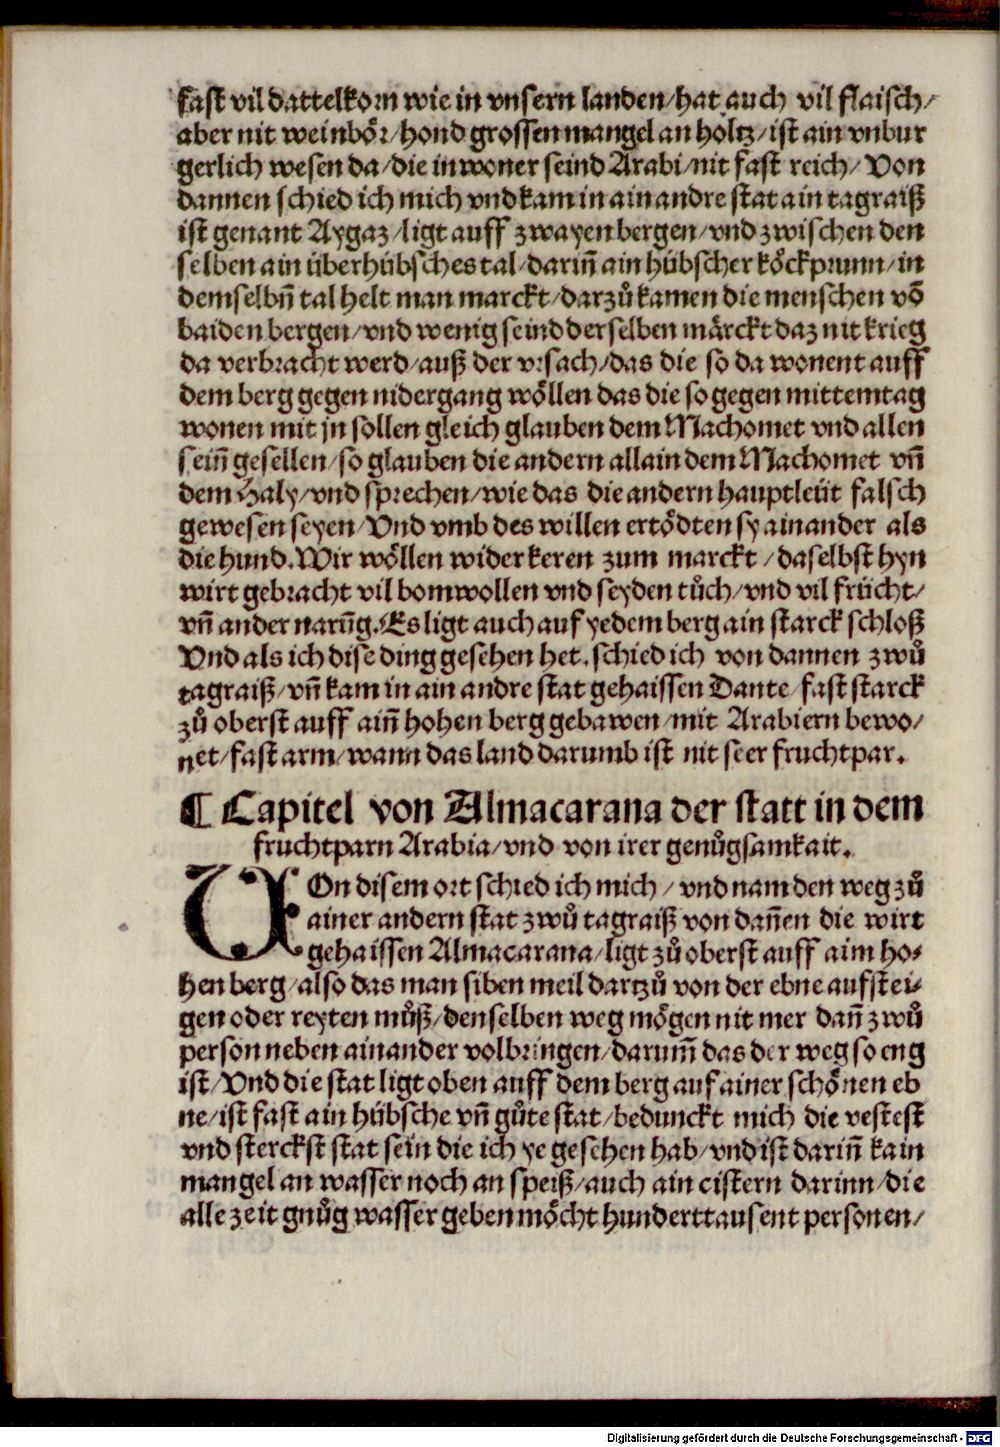 fast vil dattelkorn wie in vnsern landen/hat auch vil flaisch/
aber nit weinbör/hond grossen mangel an holtz/ist ain vnbur
gerlich wesen da/die inwoner seind Arabi/nit fast reich/Von
dannen schied ich mich vnd kam in ain andre stat ain tagraiß
ist genant Aygaz/ligt auff zwayen bergen/vnd zwischen den
selben ain überhübsches tal/dariñ ain hübscher köckprunn/in
demselbñ tal helt man marckt/darzů kamen die menschen võ
baiden bergen/vnd wenig seind derselben märckt daz nit krieg
da verbracht werd/auß der vrsach/das die so da wonent auff
dem berg gegen nidergang wöllen das die so gegen mittemtag
wonen mit jn sollen gleich glauben dem Machomet vnd allen
seiñ gesellen/so glauben die andern allain dem Machomet vñ
dem Haly/vnd sprechen/wie das die andern hauptleüt falsch
gewesen seyen/Vnd vmb des willen ertödten sy ainander als
die hund.Wir wöllen widerkeren zum marckt/daselbst hyn
wirt gebracht vil bomwollen vnd seyden tůch/vnd vil frücht/
vñ ander narũg.Es ligt auch auf yedem berg ain starck schloß
Vnd als ich dise ding gesehen het.schied ich von dannen zwů
tagraiß/vñ kam in ain andre stat gehaissen Dante/fast starck
zů oberst auff aiñ hohen berg gebawen/mit Arabiern bewo/
net/fast arm/wann das land darumb ist nit seer fruchtpar.
¶ Capitel von Almacarana der statt in dem
fruchtparn Arabia/vnd von irer genůgsamkait.
VOn disem ort schied ich mich/vnd nam den weg zů
ainer andern stat zwů tagraiß von dañen die wirt
gehaissen Almacarana/ligt zů oberst auff aim ho-
hen berg/also das man siben meil dartzů von der ebne aufstei-
gen oder reyten můß/denselben weg mögen nit mer dañ zwů
person neben ainander volbringen/darum̃ das der weg so eng
ist/Vnd die stat ligt oben auff dem berg auf ainer schönen eb
ne/ist fast ain hübsche vñ gůte stat/bedunckt mich die vestest
vnd sterckst stat sein die ich ye gesehen hab/vnd ist dariñ kain
mangel an wasser noch an speiß/auch ain cistern darinn/die
alle zeit gnůg wasser geben möcht hunderttausent personen/
Digitalisierung gefördert durch die Deutsche Forschungsgemeinschaft - DFG